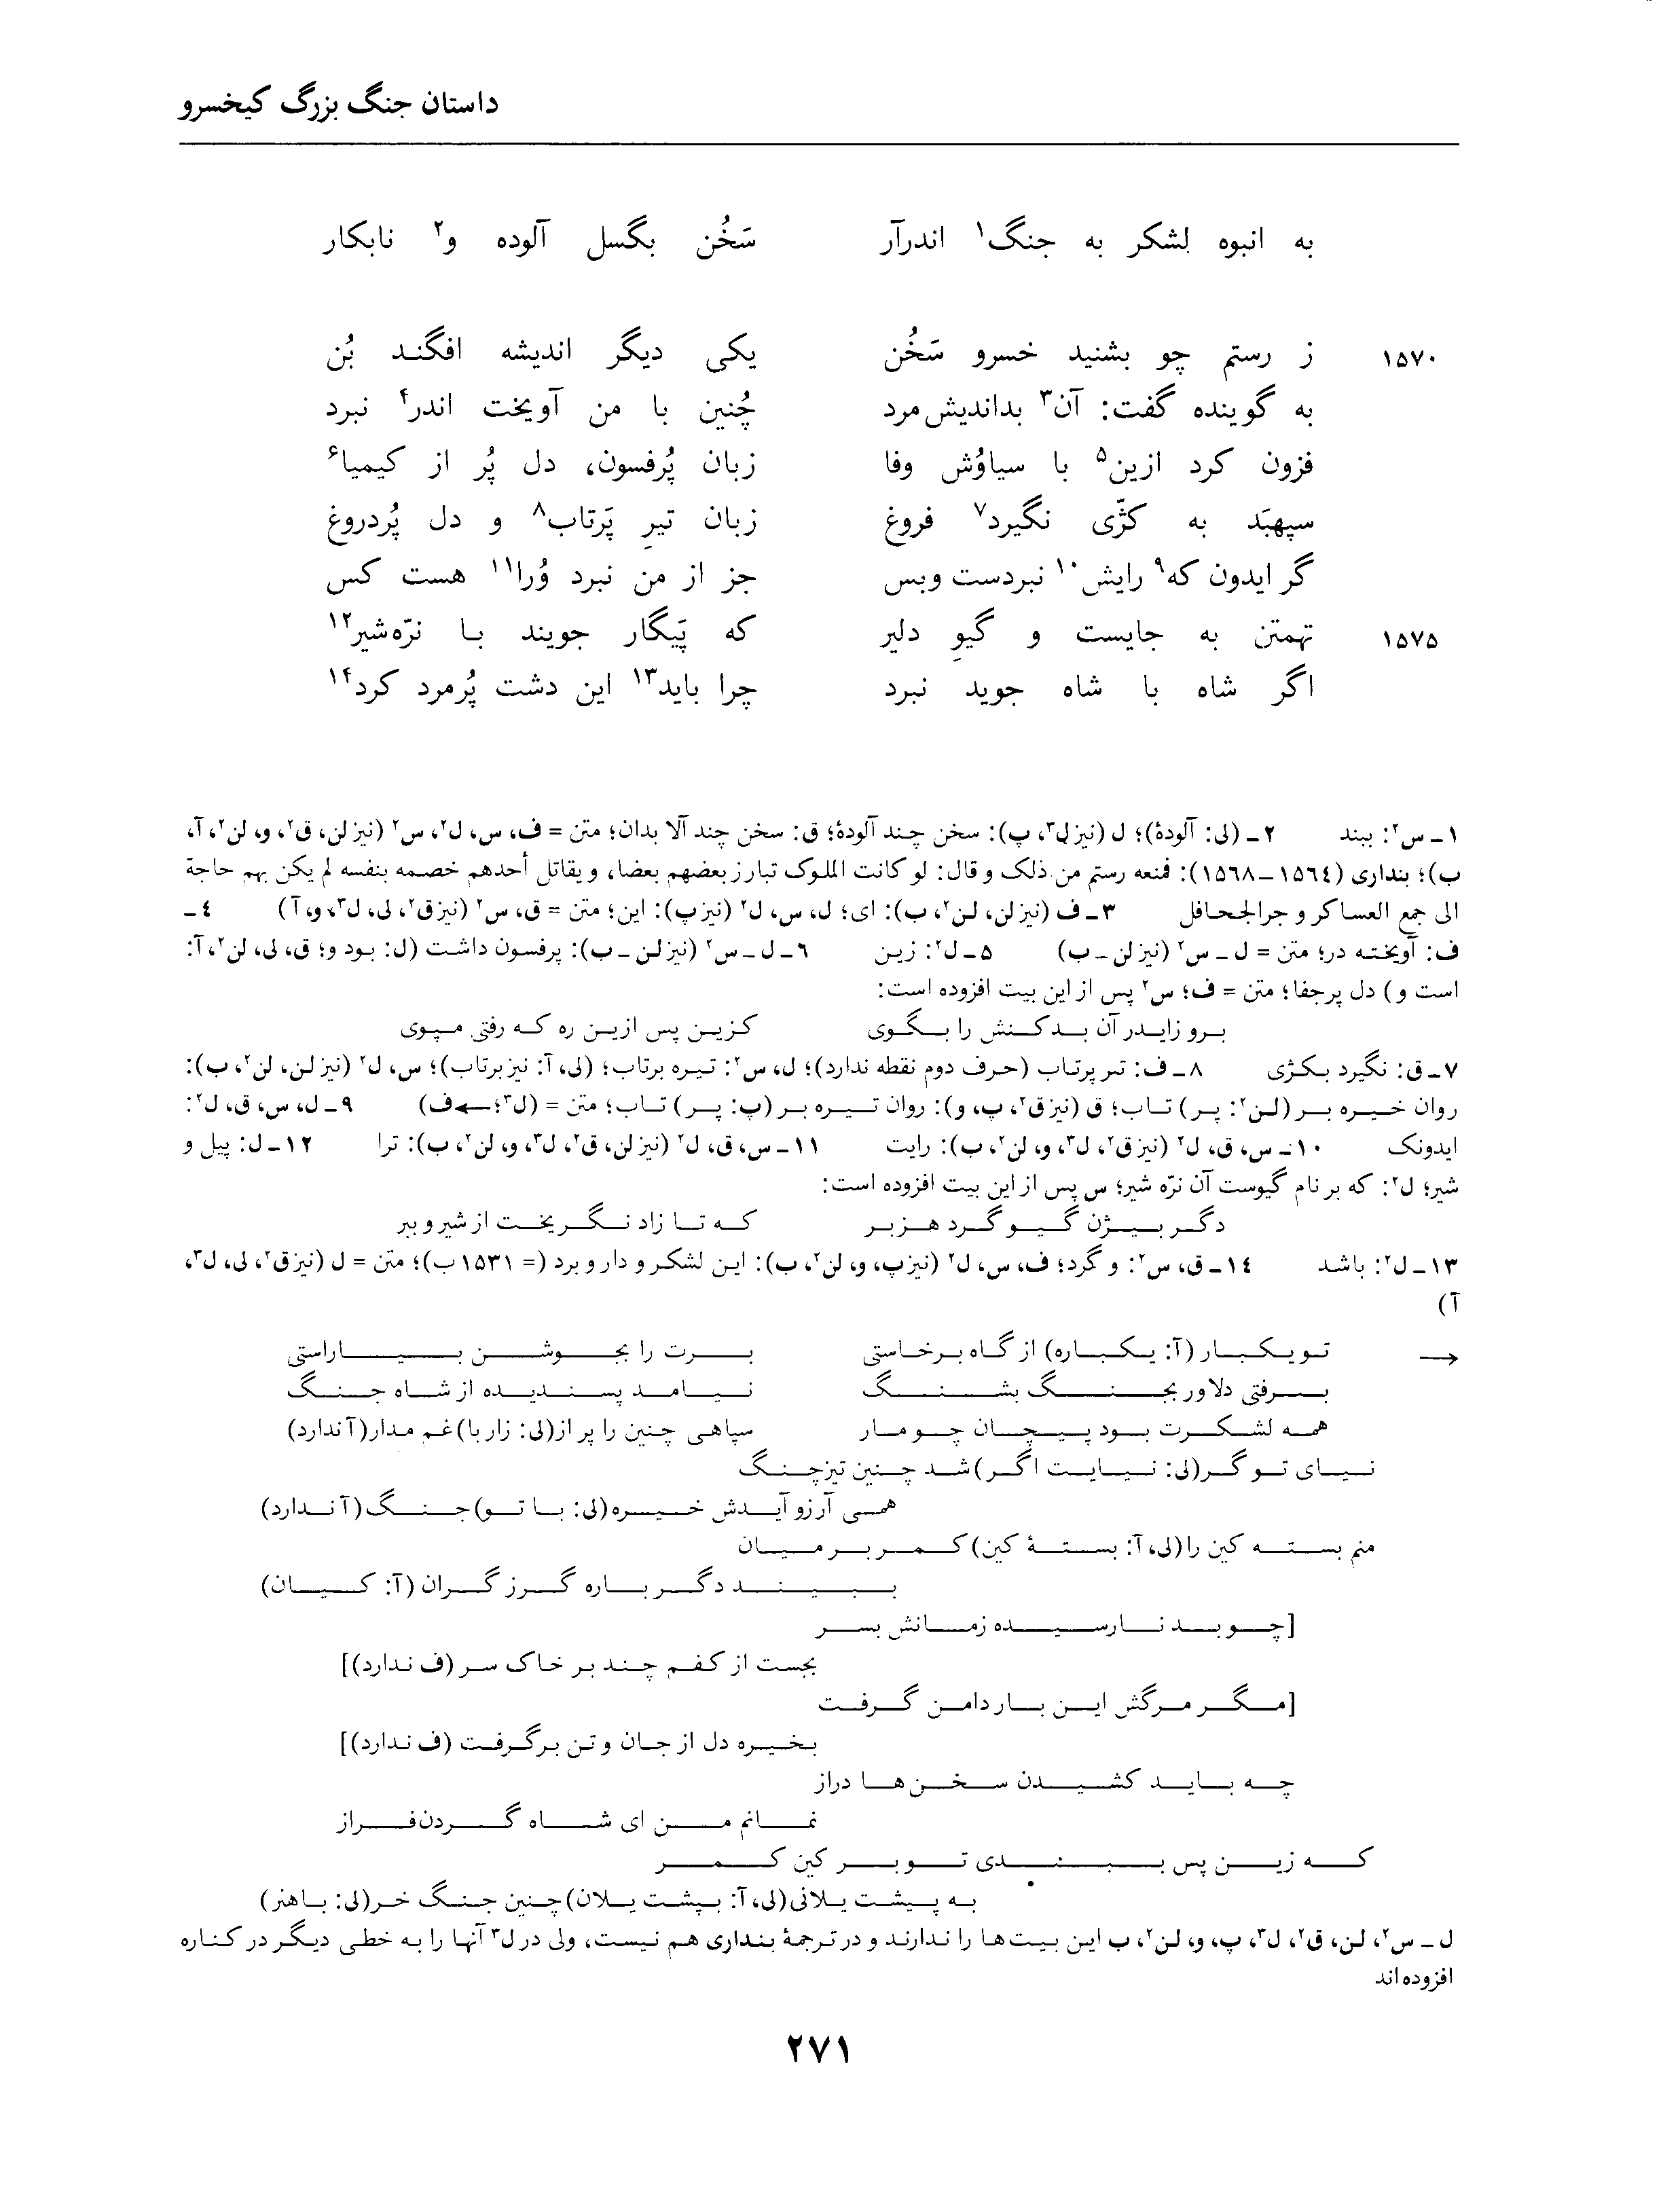 داستان جنگ بزرگ کیخسرو
به انبوه لشکر به جنگ۱ اندرآر سَخُن بگسل آلوده و۲ نابکار
۱۵۷۰ ز رستم چو بشنید خسرو سَخُن یکی دیگر اندیشه افگند بُن
به گوینده گفت: آن۳ بداندیش‌مرد چُنین با من آویخت اندر۴ نبرد
فزون کرد ازین۵ با سیاوُش وفا زبان پُرفسون، دل پُر از کیمیا۶
سپهبَد به کژّی نگیرد۷ فروغ زبان تیرِ پَرتاب۸ و دل پُردروغ
گر ایدون که۹ رایش۱۰ نبردست وبس جز از من نبرد وُرا۱۱ هست کس
۱۵۷۵ تهمتن به جایست و گیوِ دلیر که پَیگار جویند بـا نرّه‌شیر۱۲
اگر شاه با شاه جوید نبرد چرا باید۱۳ این دشت پُرمرد کرد۱۴
۱ـ س۲: ببند ۲ـ (لی: آلودهٔ)؛ ل (نیز ل۳، پ): سخن چند آلودهٔ؛ ق: سخن چند آلا بدان؛ متن = ف، س، ل۲، س۲ (نیز لن، ق۲، و، لن۲، آ،
ب)؛ بنداری (۱۵۶۴ـ۱۵۶۸): فمنعه رستم من ذلک و قال: لو کانت الملوک تبارز بعضهم بعضا، و یقاتل أحدهم خصمه بنفسه لم یکن بهم حاجة
الی جمع العساکر و جرالجحافل ۳ـ ف (نیز لن، لن۲، ب): ای؛ ل، س، ل۲ (نیز پ): این؛ متن = ق، س۲ (نیز ق۲، لی، ل۳، و، آ) ۴ـ
ف: آویخته در؛ متن = ل ـ س۲ (نیز لن ـ ب) ۵ـ ل۲: زین ۶ـ ل ـ س۲ (نیز لن ـ ب): پرفسون داشت (ل: بود و؛ ق، لی، لن۲، آ:
است و) دل پرجفا؛ متن = ف؛ س۲ پس از این بیت افزوده است:
برو زایدر آن بدکنش را بگوی کزین پس ازین ره که رفتی مپوی
۷ـ ق: نگیرد بکژی ۸ـ ف: تىر پرتاب (حرف دوم نقطه ندارد)؛ ل، س۲: تیره برتاب؛ (لی، آ: نیز برتاب)؛ س، ل۲ (نیز لن، لن۲، ب):
روان خیره بر (لن۲: پر) تاب؛ ق (نیز ق۲، پ، و): روان تیره بر (پ: پر) تاب؛ متن = (ل۳؛←ف) ۹ـ ل، س، ق، ل۲:
ایدونک ۱۰ـ س، ق، ل۲ (نیز ق۲، ل۳، و، لن۲، ب): رایت ۱۱ـ س، ق، ل۲ (نیز لن، ق۲، ل۳، و، لن۲، ب): ترا ۱۲ـ ل: پیل و
شیر؛ ل۲: که بر نام گیوست آن نرّه شیر؛ س پس از این بیت افزوده است:
دگر بیژن گیو گرد هزبر که تا زاد نگریخت از شیر و ببر
۱۳ـ ل۲: باشد ۱۴ـ ق، س۲: و گرد؛ ف، س، ل۲ (نیز پ، و، لن۲، ب): این لشکر و دار و برد (= ۱۵۳۱ ب)؛ متن = ل (نیز ق۲، لی، ل۳،
آ)
← تو یکبار (آ: یکباره) از گاه برخاستی برت را بجوشن بیاراستی
برفتی دلاور بجنگ بشنگ نیامد پسندیده از شاه جنگ
همه لشکرت بود پیچان چو مار سپاهی چنین را پر از (لی: زار با) غم مدار (آ ندارد)
نیای تو گر (لی: نیایت اگر) شد چنین تیزچنگ
همی آرزو آیدش خیره (لی: با تو) جنگ (آ ندارد)
منم بسته کین را (لی، آ: بستهٔ کین) کمر بر میان
ببیند دگر باره گرز گران (آ: کیان)
[چو بد نارسیده زمانش بسر
بجست از کفم چند بر خاک سر (ف ندارد)]
[مگر مرگش این بار دامن گرفت
بخیره دل از جان و تن برگرفت (ف ندارد)]
چه باید کشیدن سخن‌ها دراز
نمانم من ای شاه گردن‌فراز
که زین پس ببندی تو بر کین کمر
به پیشت یلانی (لی، آ: بپشت یلان) چنین جنگ خر (لی: باهنر)
ل ـ س۲، لن، ق۲، ل۳، پ، و، لن۲، ب این بیت‌ها را ندارند و در ترجمهٔ بنداری هم نیست، ولی در ل۳ آنها را به خطی دیگر در کناره
افزوده‌اند
۲۷۱